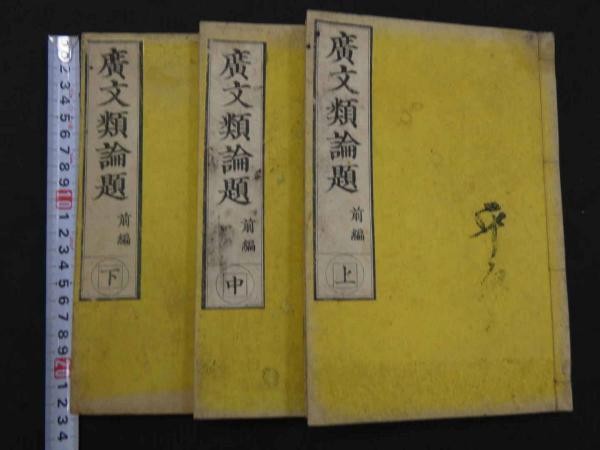 廣文類論題
前編
上
廣文類論題
前編
中
廣文類論題
前編
下
2
3
4
5
6
7
8
9
10
1
2
3
4
5
6
7
8
9
20
1
2
3
4